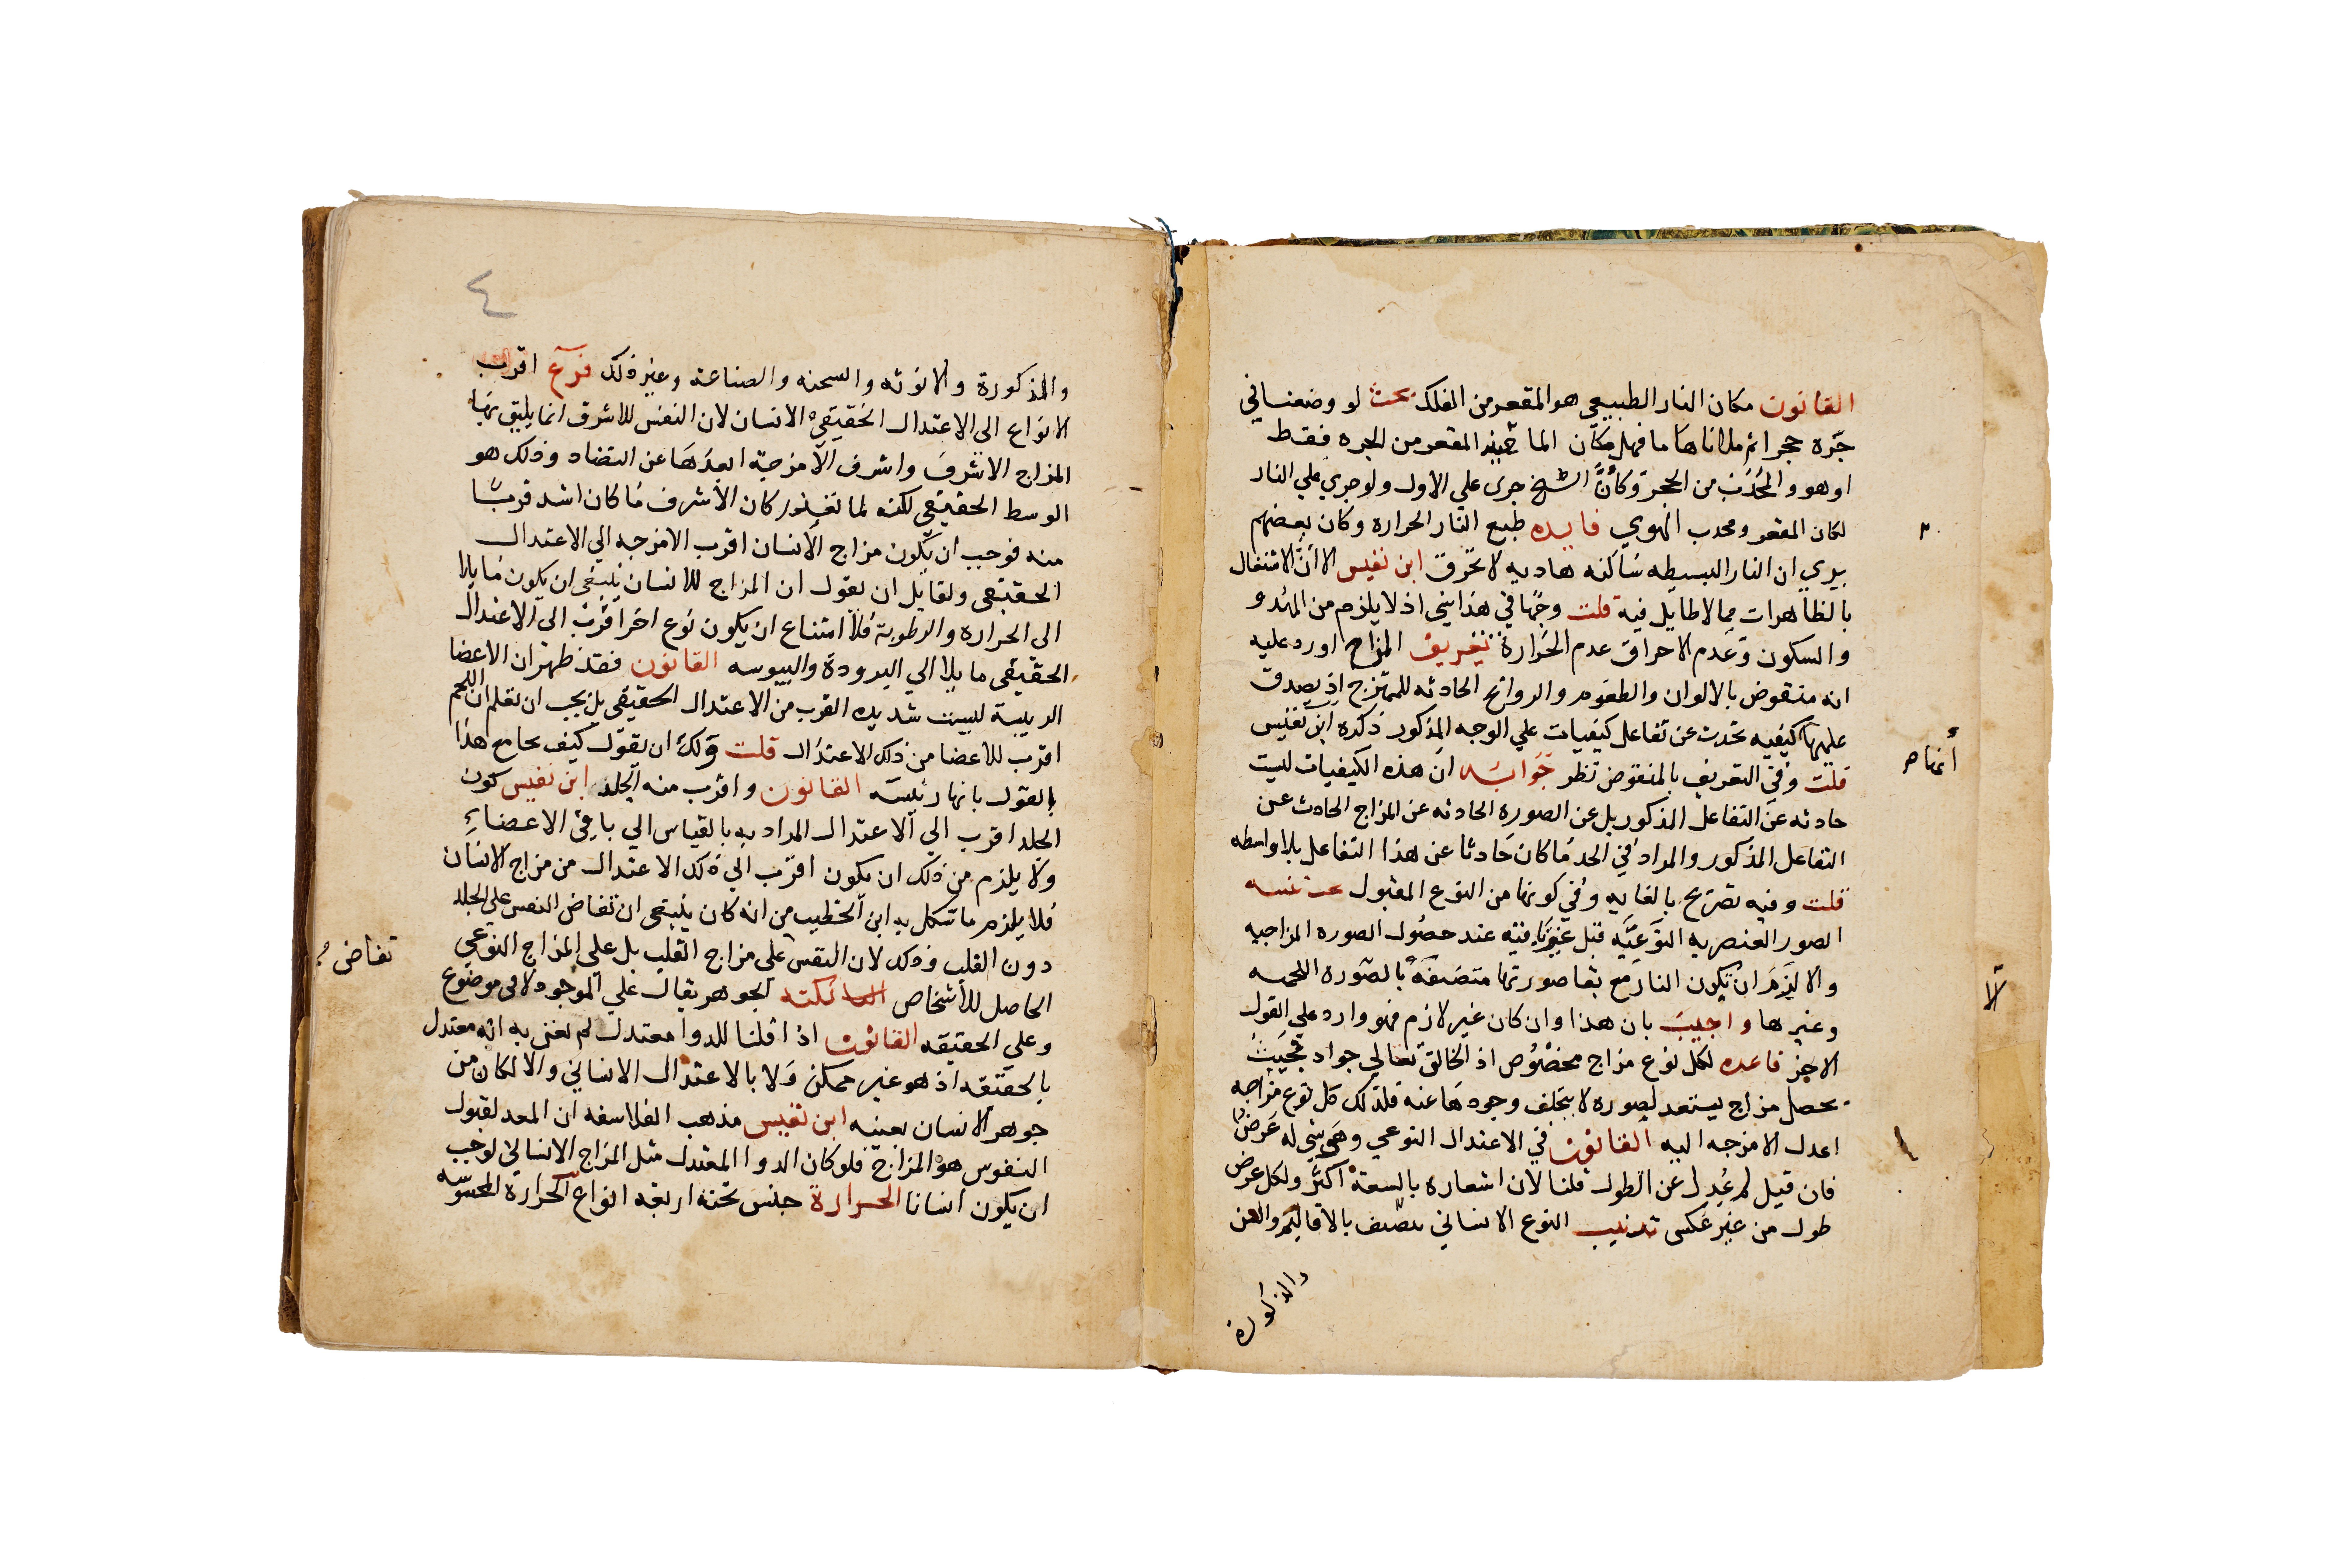 القانون مكان النار الطبيعي هو المقعر من الفلك بحث لو وضعنا في
جره حجرا ثم ملاناها ما فهل مكان الما حينيذ المقعر من الجره فقط
او هو والمحدب من الحجر وكأنّ الشيخ جرى علي الاول ولو جري علي النار
لكان المقعر ومحدب الهوي فايده طبع النار الحراره وكان بعضهم
يري ان النار البسيطه ساكنه هاديه لا تحرق ابن نفيس الا أنّ الاشتغال
بالظاهرات مما لا طايل فيه قلت وجها في هذا شي اذ لا يلزم من الهدو
والسكون وعدم الاحراق عدم الحرارة تعريف المزاج اورد عليه
انه منقوض بالالوان والطعوم والروايح الحادثه للممتزج اذ يصدق
عليها كيفيه تحدث عن تفاعل كيفيات علي الوجه المذكور ذكره ابن نفيس
قلت وفي التعريف بالمنقوض نظر جوابه ان هذه الكيفيات ليست
حادثه عن التفاعل المذكور بل عن الصوره الحادثه عن المزاج الحادث عن
التفاعل المذكور والمراد في الحد ما كان حادثا عن هذا التفاعل بلا واسطه
قلت وفيه تصريح بالغايه وفي كونها من النوع المقبول
الصور العنصريه النوعيّه قبل عند حصول الصوره المزاجيه
والا لزم ان تكون النار مع بقا صورتها متصفة بالصوره اللحميه
وغيرها واجيب بان هذا وان كان غير لازم فهو وارد علي القول
الاخر قاعده لكل نوع مزاج مخصوص اذ الخالق تعالي جواد بحيث
يحصل مزاج يستعد لصوره لا يتخلف وجودها عنه فلذلك كل نوع مزاجه
اعدل الامزجه اليه القانون في الاعتدال النوعي وهي شي له عرض
فان قيل لم عُدِل عن الطول قلنا لان اشعاره بالسعة اكثر ولكل عرض
طول من غير عكس تذنيب النوع الانساني يصنف بالاقاليم والسن
والذكورة
والمذكورة والانوثه والسحنه والصناعه وغير ذلك فرع اقرب
الانواع الى الاعتدال الحقيقي الانسان لان النفس للاشرف انما يليق بها
المزاج الاشرف واشرف الامزجة ابعدها عن التضاد وذلك هو
الوسط الحقيقي لكنه لما تعذر كان الأشرف ما كان اشد قربًا
منه فوجب ان يكون مزاج الانسان اقرب الامزجه الي الاعتدال
الحقيقي ولقايل ان يقول ان المزاج للانسان ينبغي ان يكون مايلا
الى الحراره والرطوبة فلا امتناع ان يكون نوع اخر اقرب الى الاعتدال
الحقيقي مايلا الي البرودة واليبوسه القانون فقد ظهر ان الاعضا
الرييسة ليست شديده القرب من الاعتدال الحقيقي بل يجب ان تعلم ان اللحم
اقرب للاعضا من ذلك الاعتدال قلت ولك ان تقول كيف يجامع هذا
بالقول بانها رئيسة القانون واقرب منه الجلد ابن نفيس كون
الجلد اقرب الي الاعتدال المراد به بالقياس الي باقي الاعضاء
ولا يلزم من ذلك ان يكون اقرب الي ذلك الاعتدال من مزاج الانسان
فلا يلزم ما شكل به ابن الخطيب من انه كان ينبغي ان تفاض النفس على الجلد
دون القلب وذلك لان النفس على مزاج القلب بل على المزاج النوعي
الحاصل للأشخاص نكته الجوهر يقال علي الموجود لا في موضوع
وعلي الحقيقه القانون اذا قلنا للدوا معتدل لم نعني به انه معتدل
بالحقيقه اذ هو غير ممكن ولا بالاعتدال الانساني والا لكان من
جوهر الانسان بعينه ابن نفيس مذهب الفلاسفه ان المعد لقبول
النفوس هو المزاج فلو كان الدوا المعتدل مثل المزاج الانساني لوجب
ان يكون انسانا الحرارة جنس تحته اربعه انواع الحرارة المحسوسه
تفاض
٤